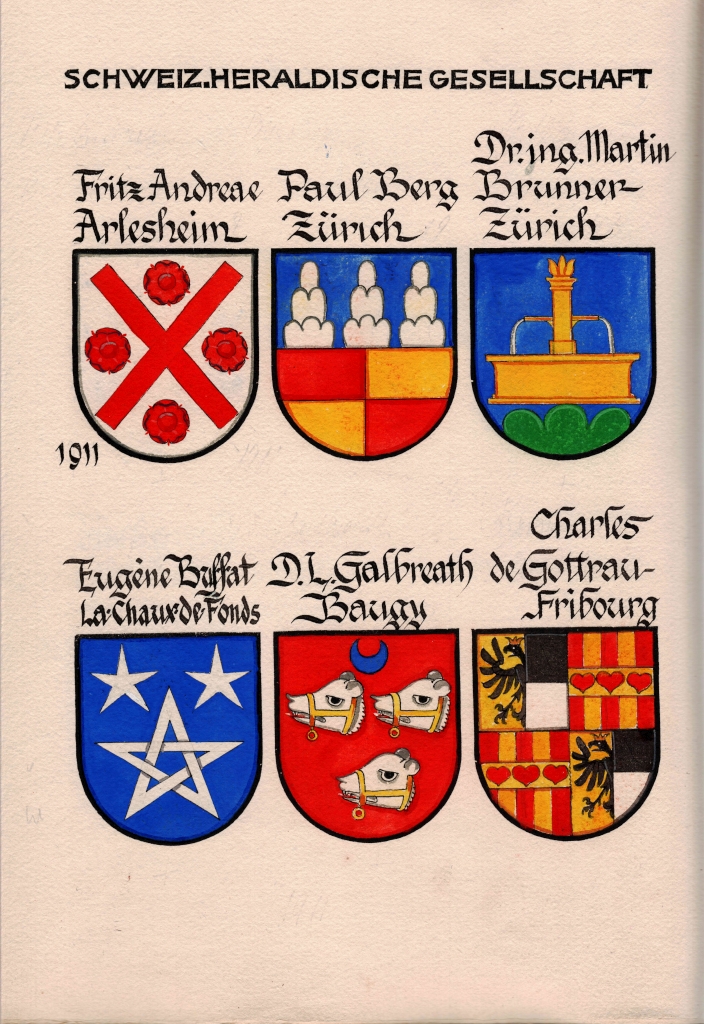 SCHWEIZ.HERALDISCHE GESELLSCHAFT
Fritz Andreae
Arlesheim
Paul Berg
Zürich
Dr.ing.Martin
Brunner-
Zürich
1911
Eugène Buffat
La-Chaux-de-Fonds
D.L.Galbreath
Baugy
Charles
de Gottrau-
Fribourg